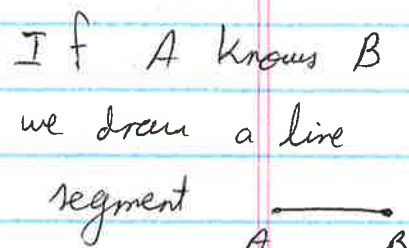 If A knows B
we draw a line
segment
A B